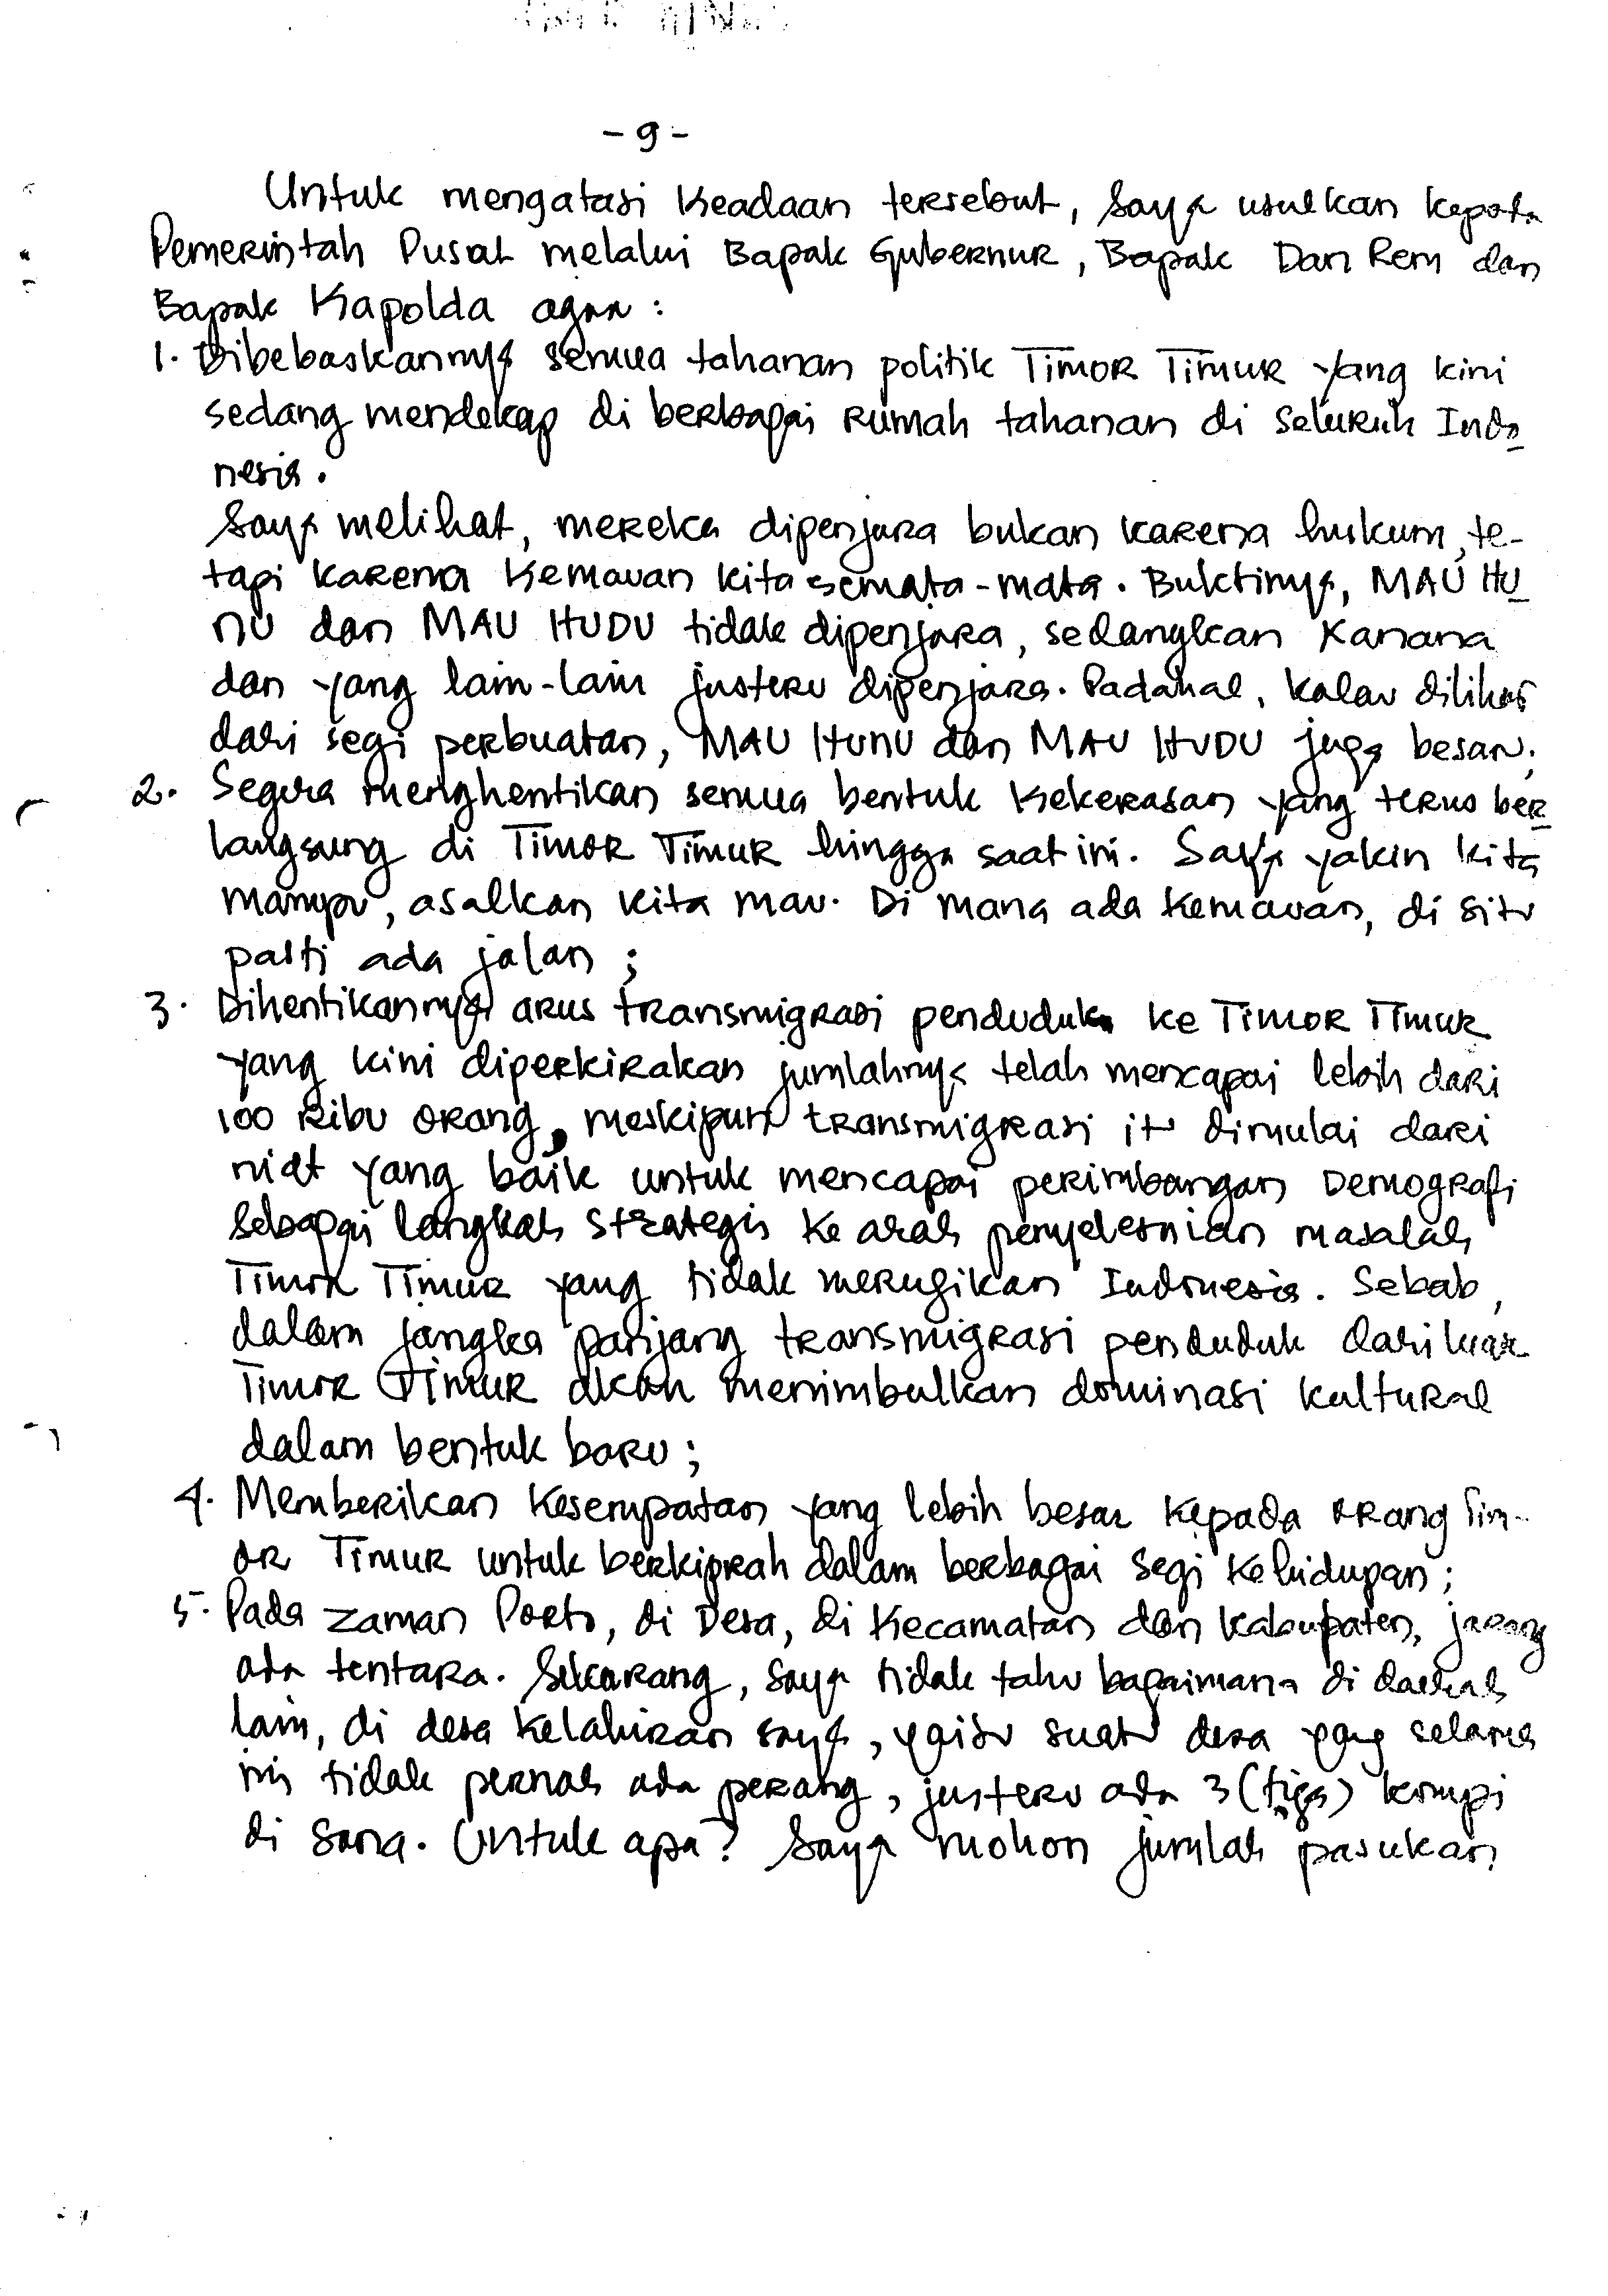 - 9 -
Untuk mengatasi keadaan tersebut, saya usulkan kepada
Pemerintah Pusat melalui Bapak Gubernur, Bapak Dan Rem dan
Bapak Kapolda agar :
1. Dibebaskannya semua tahanan politik Timor Timur yang kini
sedang mendekap di berbagai rumah tahanan di seluruh Indo
nesia.
Saya melihat, mereka dipenjara bukan karena hukum, te-
tapi karena kemauan kita semata-mata. Buktinya, MAU HU
NU dan MAU HUDU tidak dipenjara, sedangkan Xanana
dan yang lain-lain justeru dipenjara. Padahal, kalau dilihat
dari segi perbuatan, MAU HUNU dan MAU HUDU juga besar;
2. Segera menghentikan semua bentuk kekerasan yang terus ber
langsung di Timor Timur hingga saat ini. Saya yakin kita
mampu, asalkan kita mau. Di mana ada kemauan, di situ
pasti ada jalan ;
3. Dihentikannya arus transmigrasi penduduk ke Timor Timur
yang kini diperkirakan jumlahnya telah mencapai lebih dari
100 ribu orang, meskipun transmigrasi itu dimulai dari
niat yang baik untuk mencapai perimbangan Demografi
sebagai langkah strategis ke arah penyelesaian masalah
Timor Timur yang tidak merugikan Indonesia. Sebab,
dalam jangka panjang transmigrasi penduduk dari luar
Timor Timur akan menimbulkan dominasi kultural
dalam bentuk baru ;
4. Memberikan kesempatan yang lebih besar kepada orang Tim-
or Timur untuk berkiprah dalam berbagai segi kehidupan ;
5. Pada zaman Porto, di Desa, di Kecamatan dan Kabupaten, jarang
ada tentara. Sekarang, saya tidak tahu bagaimana di daerah
lain, di desa kelahiran saya, yaitu suatu desa yang selama
ini tidak pernah ada perang, justeru ada 3 (tiga) kompi
di sana. Untuk apa? Saya mohon jumlah pasukan